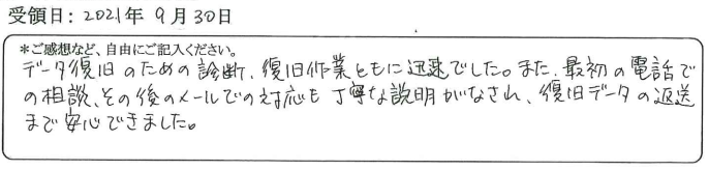 受領日: 2021年 9月30日
*ご感想など、自由にご記入ください。
データ復旧のための診断、復旧作業ともに迅速でした。また、最初の電話で
の相談、その後のメールでの対応も丁寧な説明がなされ、復旧データの返送
まで安心できました。